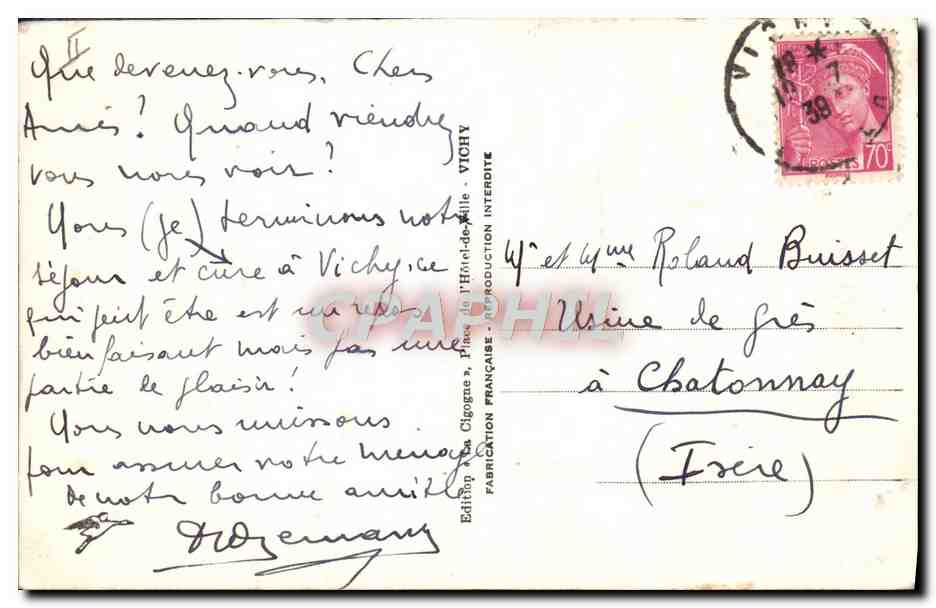 II
Que devenez-vous, Chers
Amis? Quand viendrez
vous nous voir?
Nous (je) terminons notre
séjour et cure à Vichy, ce
qui peut être est un repos
bienfaisant mais pas une
partie de plaisir!
Nous nous unissons
pour assurer votre ménage
de notre bonne amitié
Edition « La Cigogne », Place de l'Hôtel-de-Ville - VICHY
FABRICATION FRANÇAISE - REPRODUCTION INTERDITE
VICHY
18 *
10 7
39
POSTES
70c
Mr et Mme Roland Buisset
Usine de grès
à Chatonnay
(Isère)
CPAPHIL